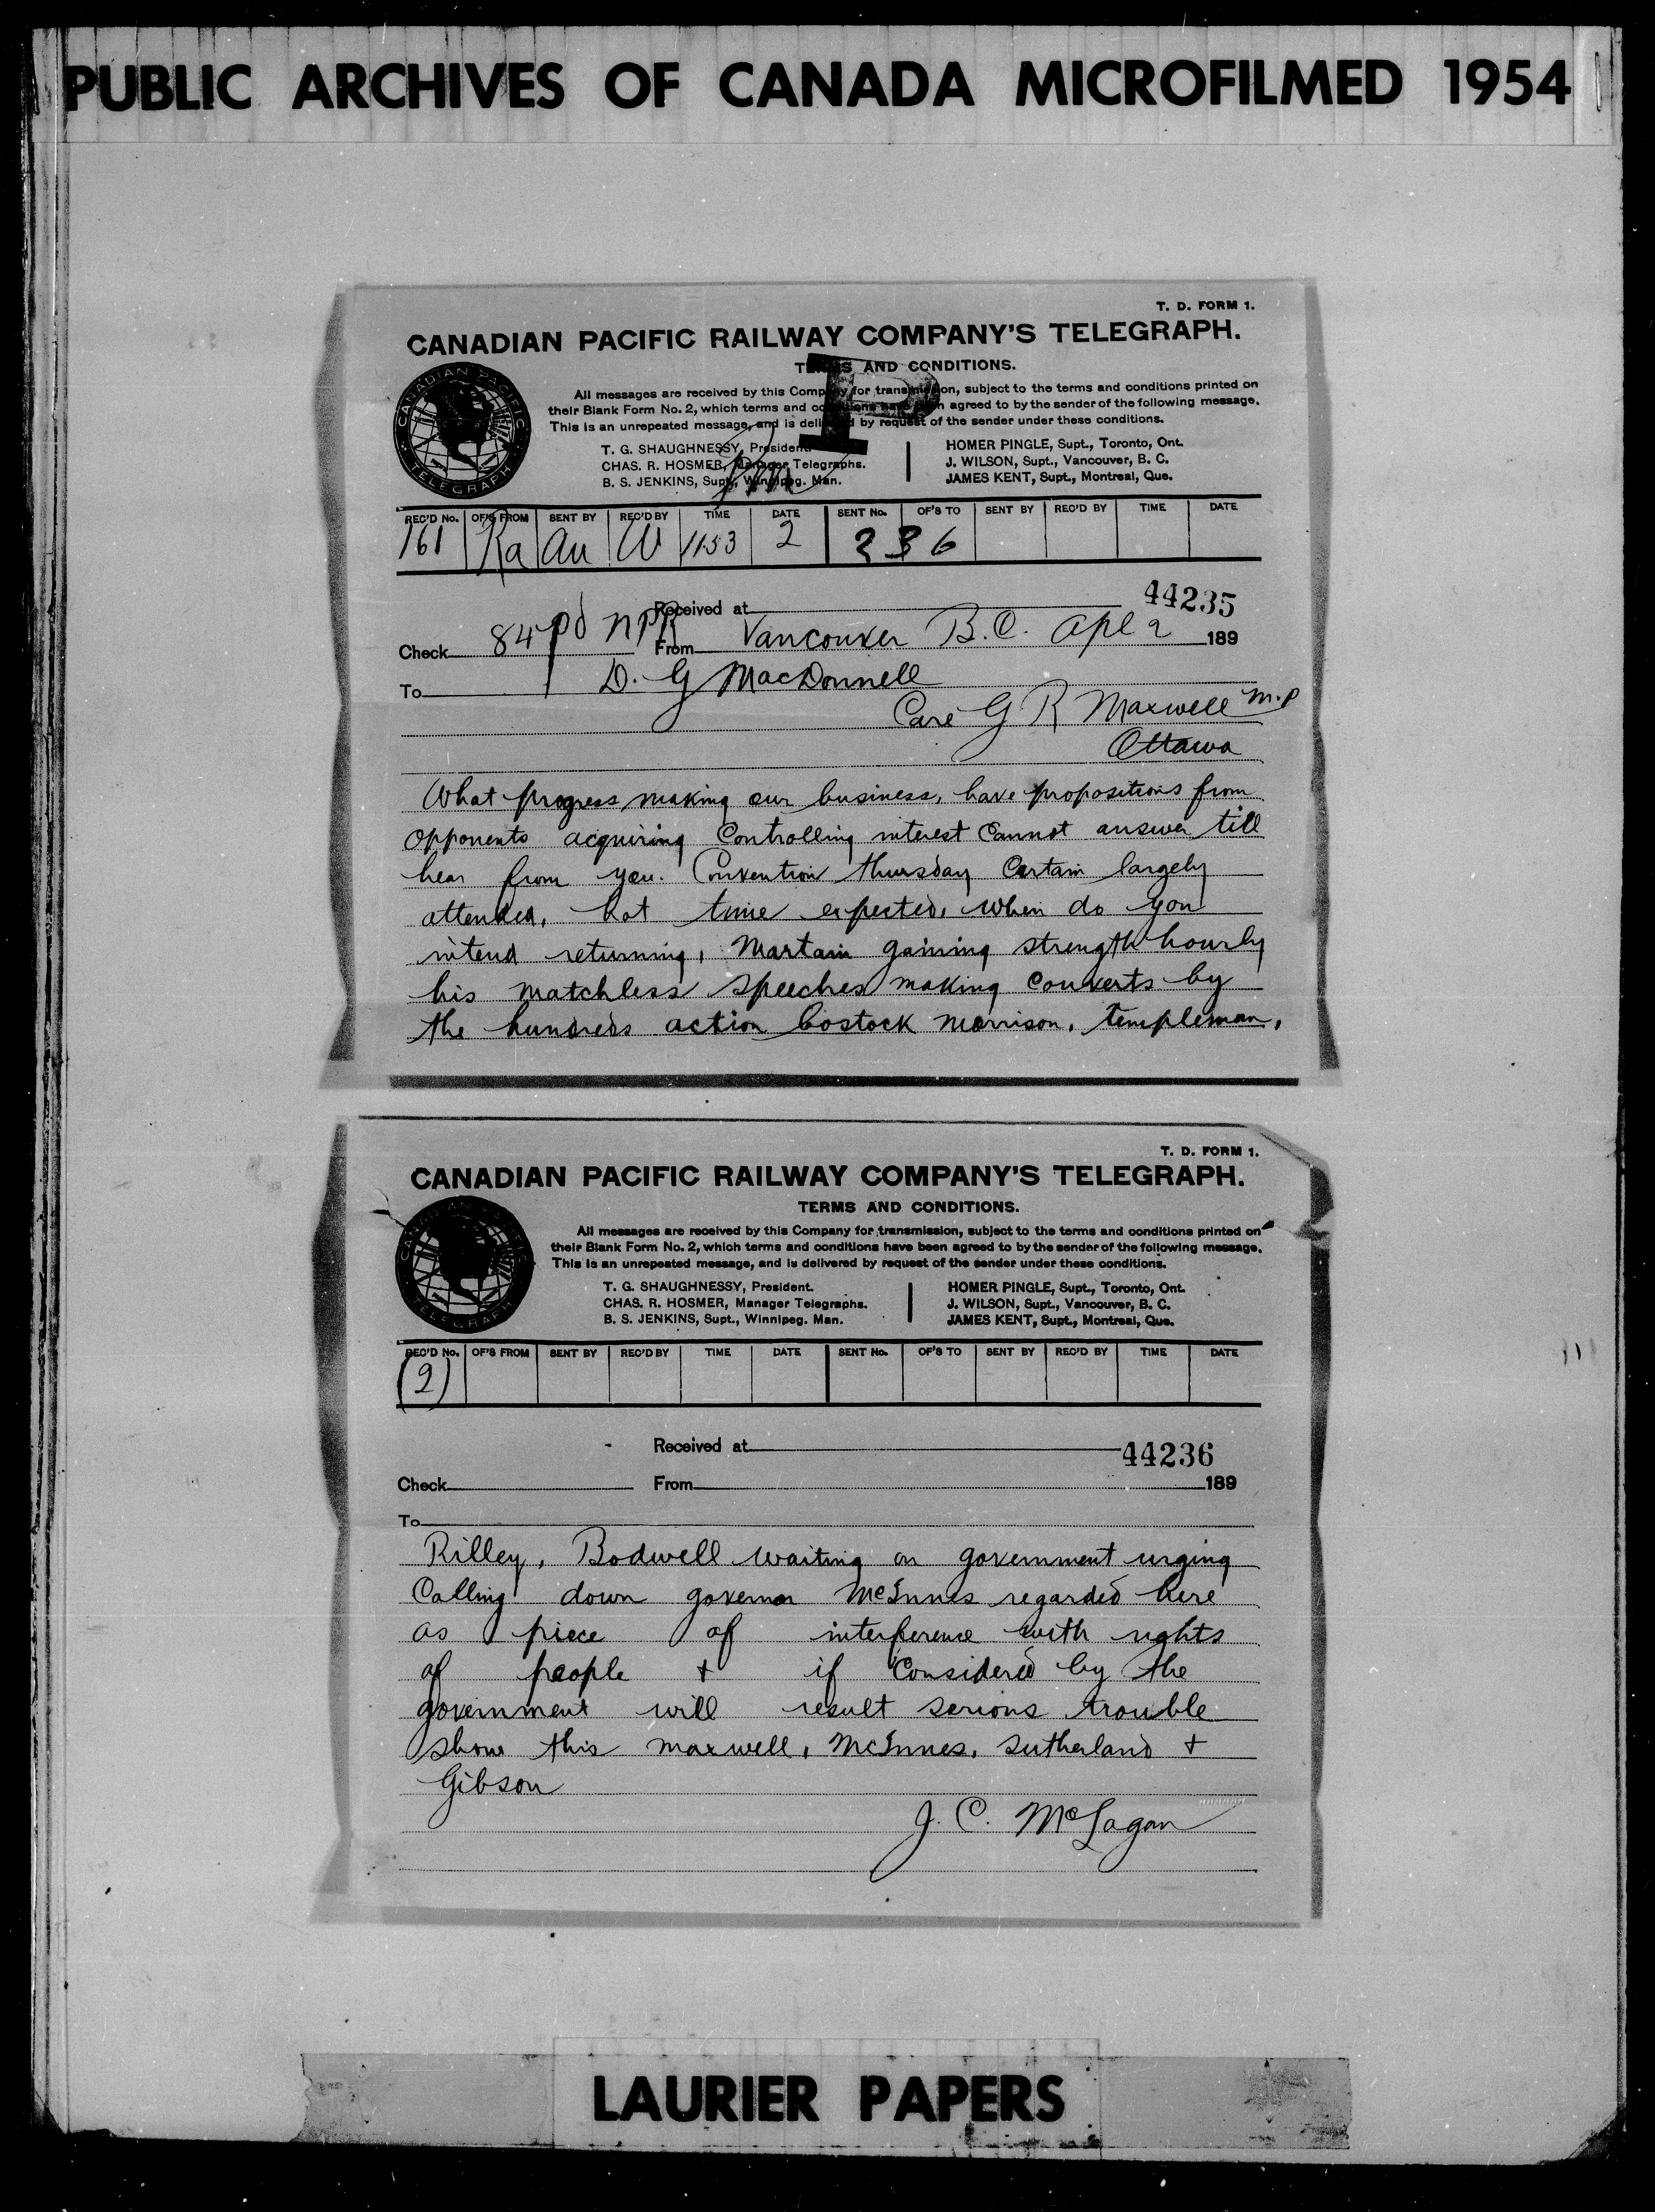 PUBLIC ARCHIVES OF CANADA MICROFILMED 1954
T. D. FORM 1.
CANADIAN PACIFIC RAILWAY COMPANY'S TELEGRAPH.
TERMS AND CONDITIONS.
All messages are received by this Company for transmission, subject to the terms and conditions printed on
their Blank Form No. 2, which terms and conditions have been agreed to by the sender of the following message.
This is an unrepeated message, and is delivered by request of the sender under these conditions.
T. G. SHAUGHNESSY, President.
CHAS. R. HOSMER, Manager Telegraphs.
B. S. JENKINS, Supt., Winnipeg. Man.
HOMER PINGLE, Supt., Toronto, Ont.
J. WILSON, Supt., Vancouver, B. C.
JAMES KENT, Supt., Montreal, Que.
CANADIAN PACIFIC TELEGRAPH
REC'D No. OF'S FROM SENT BY REC'D BY TIME DATE SENT No. OF'S TO SENT BY REC'D BY TIME DATE
161 Ra au W 1153 2 236
Received at 44235
Check 84 pd NPR From Vancouver B.C. Apl 2 189
To D. G MacDonnell
Care G R Maxwell M.P
Ottawa
What progress making our business, have propositions from
opponents acquiring Controlling interest Cannot answer till
hear from you. Convention thursday Certain largely
attended, hot time expected, when do you
intend returning, Martain gaining strength hourly
his matchless speeches making Converts by
the hundreds action bostock morrison, templeman,
T. D. FORM 1.
CANADIAN PACIFIC RAILWAY COMPANY'S TELEGRAPH.
TERMS AND CONDITIONS.
All messages are received by this Company for transmission, subject to the terms and conditions printed on
their Blank Form No. 2, which terms and conditions have been agreed to by the sender of the following message.
This is an unrepeated message, and is delivered by request of the sender under these conditions.
T. G. SHAUGHNESSY, President.
CHAS. R. HOSMER, Manager Telegraphs.
B. S. JENKINS, Supt., Winnipeg. Man.
HOMER PINGLE, Supt., Toronto, Ont.
J. WILSON, Supt., Vancouver, B. C.
JAMES KENT, Supt., Montreal, Que.
CANADIAN PACIFIC TELEGRAPH
REC'D No. OF'S FROM SENT BY REC'D BY TIME DATE SENT No. OF'S TO SENT BY REC'D BY TIME DATE
(2)
Received at 44236
Check From 189
To
Rilley, Bodwell waiting on government urging
Calling down governor McInnes regarded here
as piece of interference with rights
of people + if Considered by the
government will result serious trouble
show this maxwell, McInnes, Sutherland +
Gibson
J. C. McLagan
LAURIER PAPERS